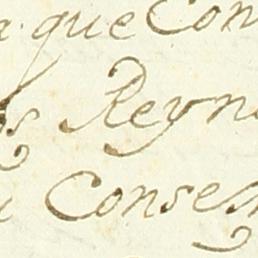 que Con
Reyn
Conse